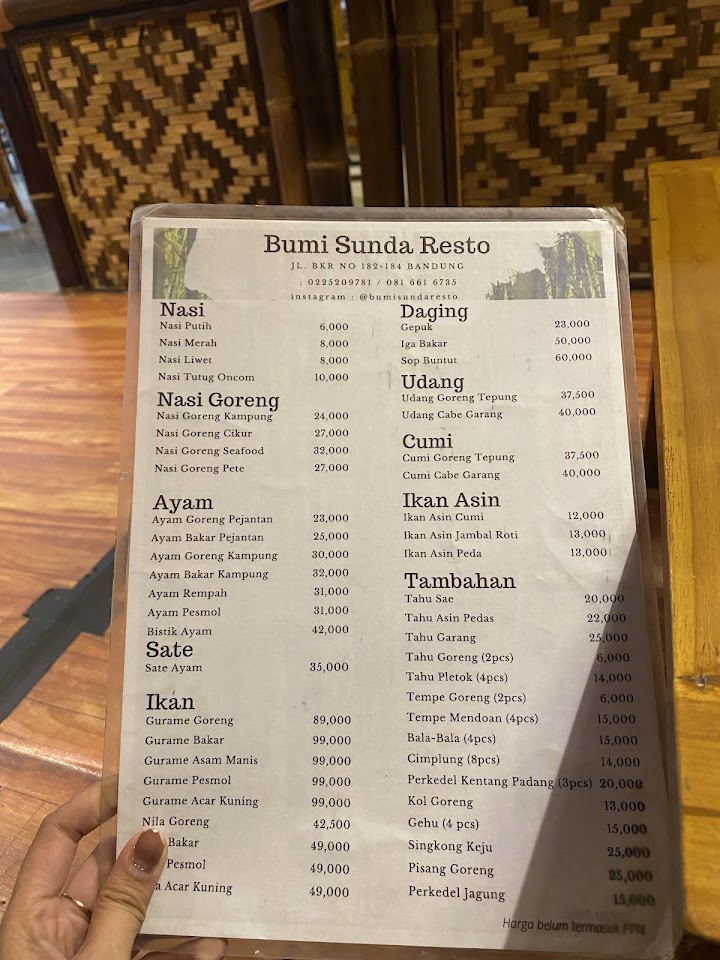 Bumi Sunda Resto
JL. BKR NO 182-184 BANDUNG
: 0225209781 / 081 661 6735
instagram : @bumisundaresto
Nasi
Nasi Putih 6,000
Nasi Merah 8,000
Nasi Liwet 8,000
Nasi Tutug Oncom 10,000
Nasi Goreng
Nasi Goreng Kampung 24,000
Nasi Goreng Cikur 27,000
Nasi Goreng Seafood 32,000
Nasi Goreng Pete 27,000
Ayam
Ayam Goreng Pejantan 23,000
Ayam Bakar Pejantan 25,000
Ayam Goreng Kampung 30,000
Ayam Bakar Kampung 32,000
Ayam Rempah 31,000
Ayam Pesmol 31,000
Bistik Ayam 42,000
Sate
Sate Ayam 35,000
Ikan
Gurame Goreng 89,000
Gurame Bakar 99,000
Gurame Asam Manis 99,000
Gurame Pesmol 99,000
Gurame Acar Kuning 99,000
Nila Goreng 42,500
Bakar 49,000
Pesmol 49,000
a Acar Kuning 49,000
Daging
Gepuk 23,000
Iga Bakar 50,000
Sop Buntut 60,000
Udang
Udang Goreng Tepung 37,500
Udang Cabe Garang 40,000
Cumi
Cumi Goreng Tepung 37,500
Cumi Cabe Garang 40,000
Ikan Asin
Ikan Asin Cumi 12,000
Ikan Asin Jambal Roti 13,000
Ikan Asin Peda 13,000
Tambahan
Tahu Sae 20,000
Tahu Asin Pedas 22,000
Tahu Garang 25,000
Tahu Goreng (2pcs) 6,000
Tahu Pletok (4pcs) 14,000
Tempe Goreng (2pcs) 6,000
Tempe Mendoan (4pcs) 15,000
Bala-Bala (4pcs) 15,000
Cimplung (8pcs) 14,000
Perkedel Kentang Padang (3pcs) 20,000
Kol Goreng 13,000
Gehu (4 pcs) 15,000
Singkong Keju 25,000
Pisang Goreng 25,000
Perkedel Jagung 15,000
Harga belum termasuk PPN